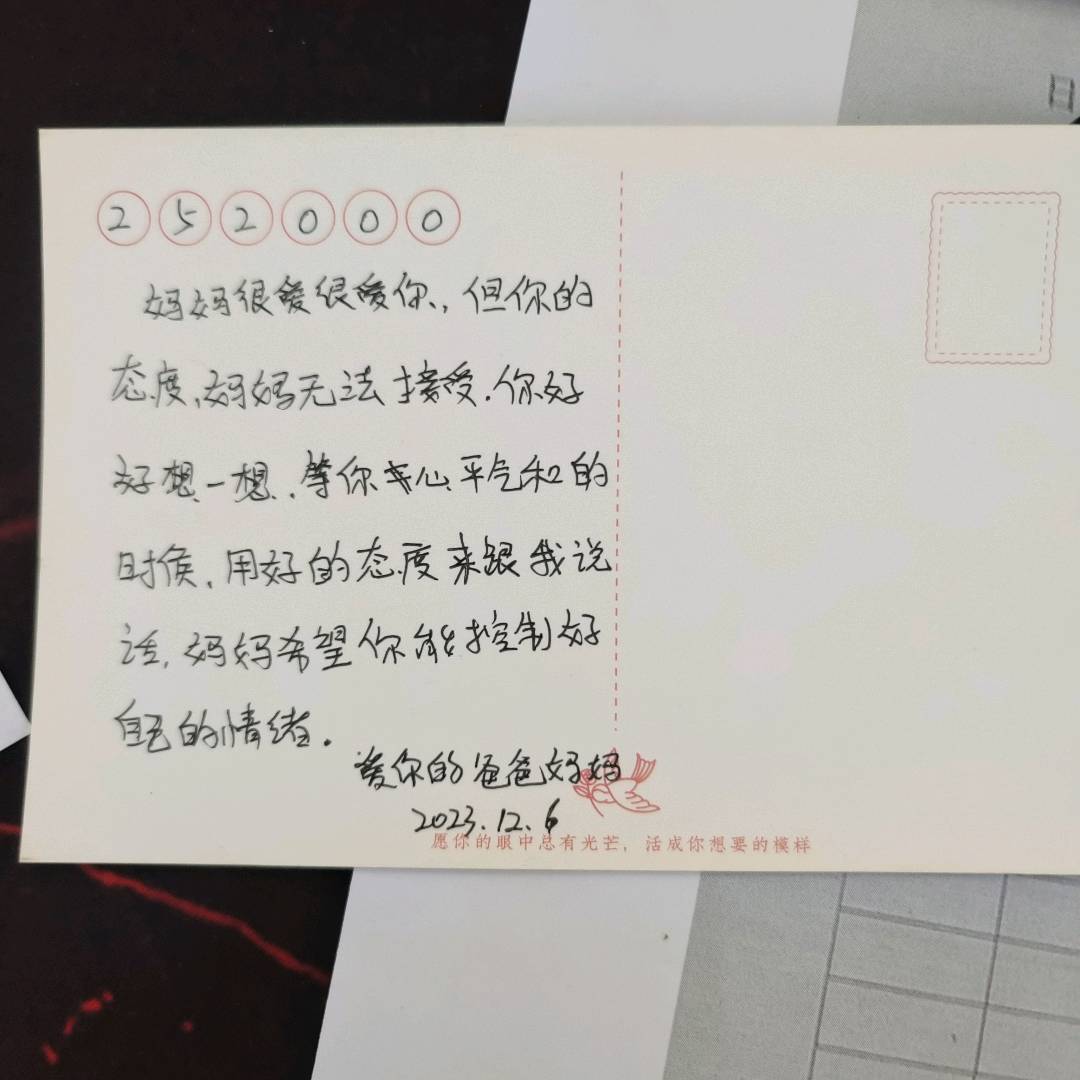 日
252000
妈妈很爱很爱你,但你的
态度,妈妈无法接受.你好
好想一想,等你心平气和的
时侯,用好的态度来跟我说
话,妈妈希望你能控制好
自己的情绪.
爱你的爸爸妈妈
2023.12.6
愿你的眼中总有光芒,活成你想要的模样